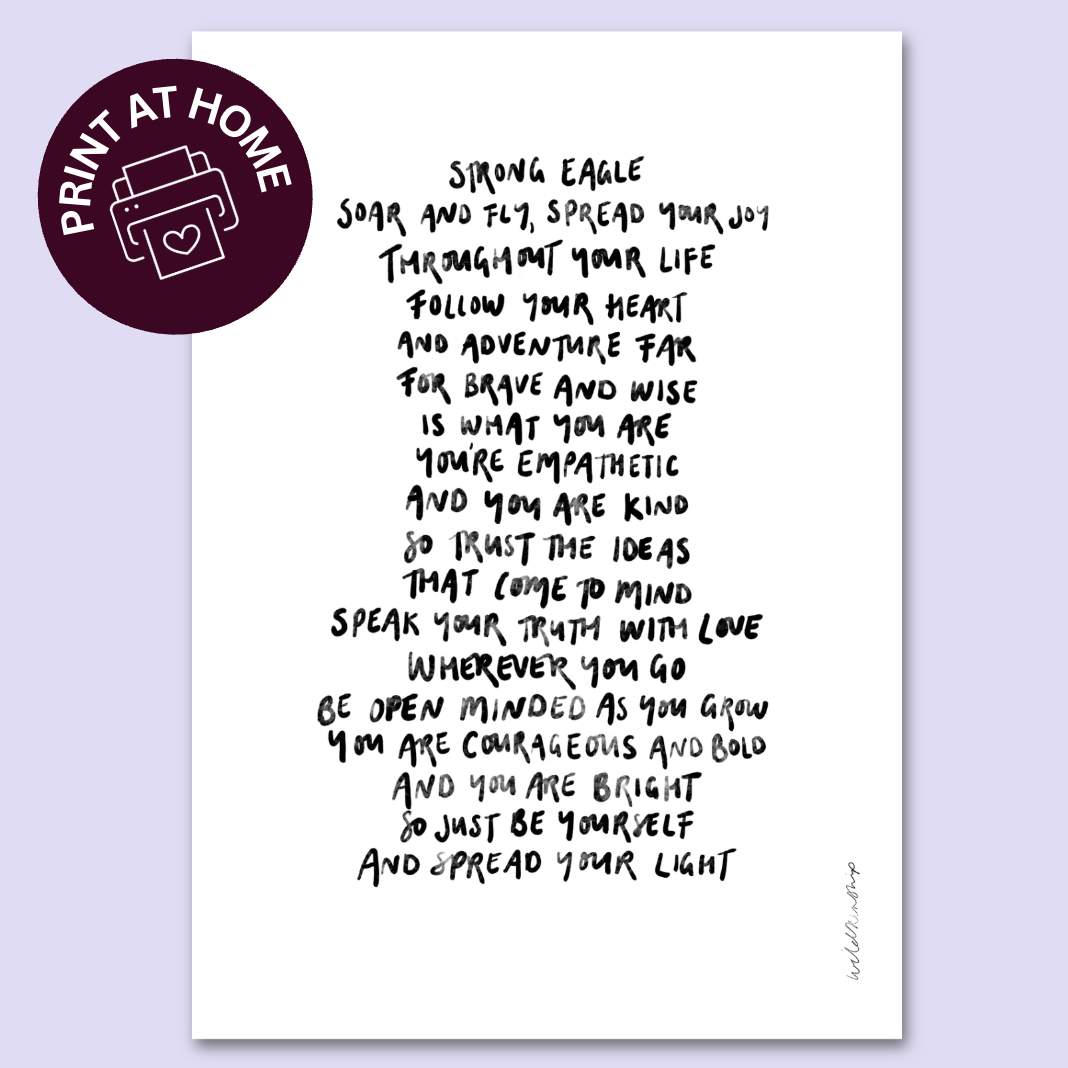 PRINT AT HOME
STRONG EAGLE
SOAR AND FLY, SPREAD YOUR JOY
THROUGHOUT YOUR LIFE
FOLLOW YOUR HEART
AND ADVENTURE FAR
FOR BRAVE AND WISE
IS WHAT YOU ARE
YOU'RE EMPATHETIC
AND YOU ARE KIND
SO TRUST THE IDEAS
THAT COME TO MIND
SPEAK YOUR TRUTH WITH LOVE
WHEREVER YOU GO
BE OPEN MINDED AS YOU GROW
YOU ARE COURAGEOUS AND BOLD
AND YOU ARE BRIGHT
SO JUST BE YOURSELF
AND SPREAD YOUR LIGHT
wildkinship